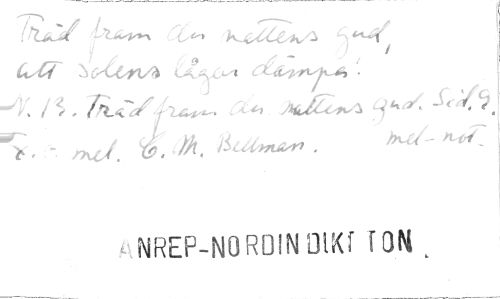 Träd fram du nattens gud,
att solens lågor dämpa!
N. 13. Träd fram du nattens gud. Sid. 9.
mel. C. M. Bellman. mel-not.
ANREP-NORDIN DIKT TON.